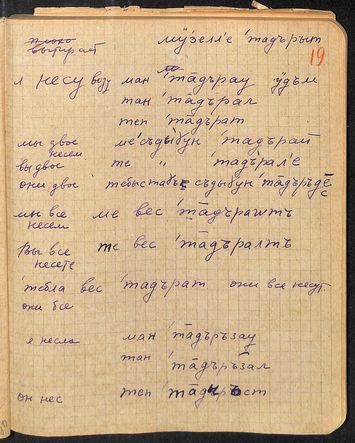 мӱ̄зелл'е 'та̄дърът 19
вытират
я несу возу ман 'та̄дърау ӱ̄дъм
тан 'та̄дърал
теп 'та̄дърат
мы двое несем ме съды̄бун 'та̄дърай
вы двое те " 'та̄дърал'е
они двое тебыстабъе съдыбун 'та̄дъръде̄
мы все несем ме вес 'та̄дъраштъ
вы все несете те вес 'та̄дъралтъ
тебла вес 'та̄дърат они все несут
они все
я несла ман 'та̄дъръзау
тан 'та̄дъръзал
он нес теп 'та̄дъръст